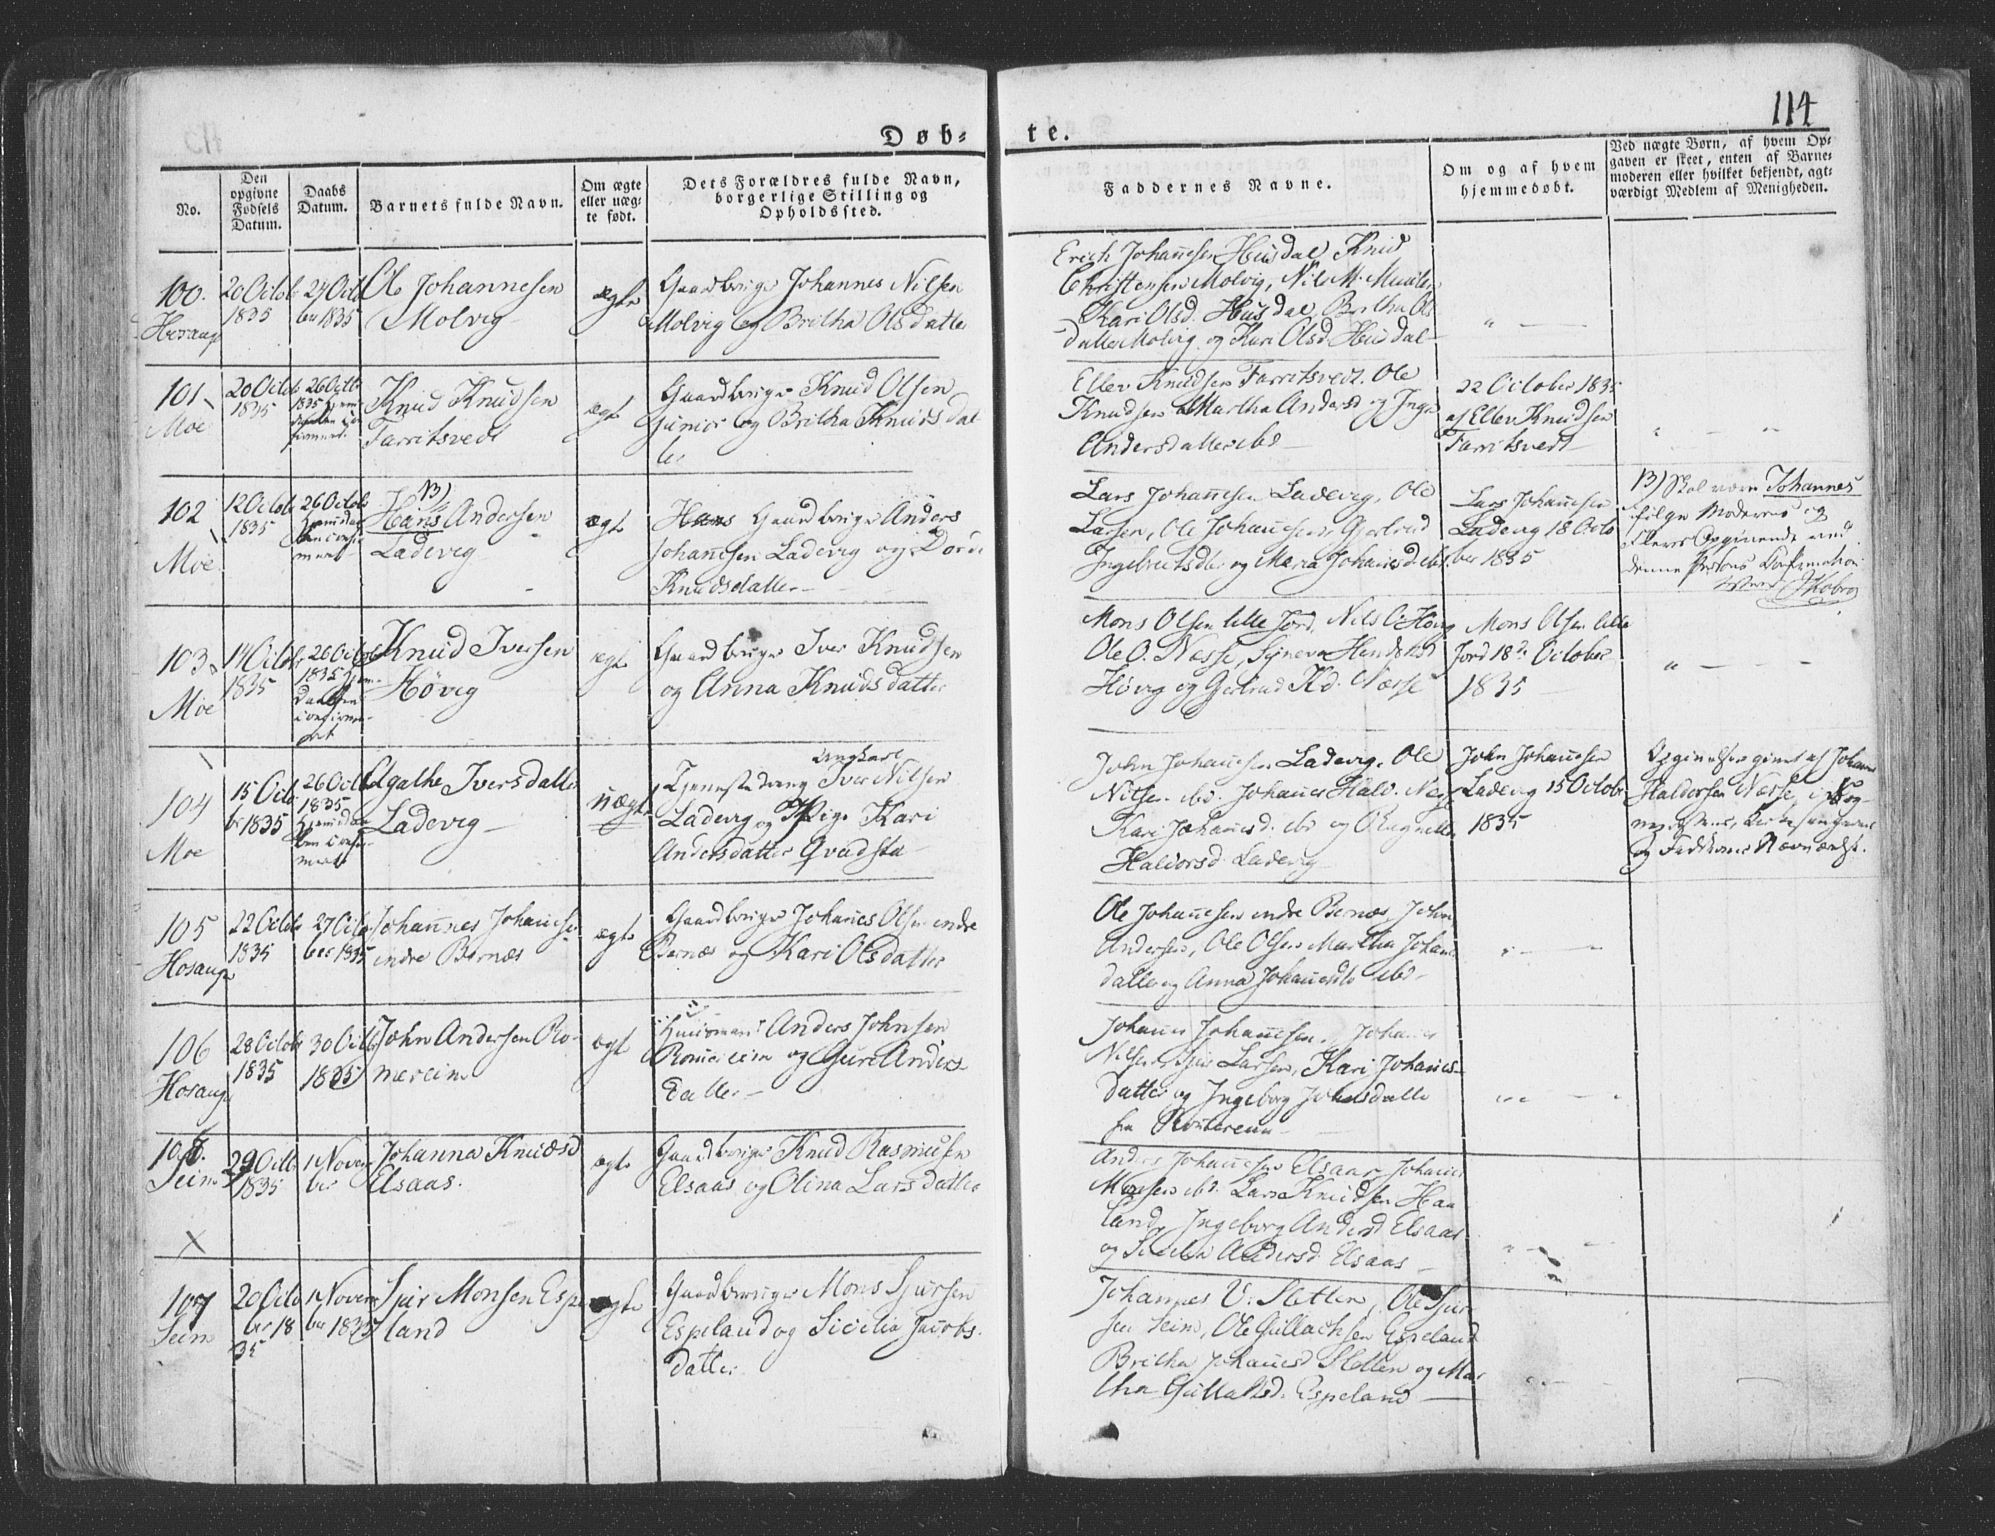 114
Døb-
te.
No.
Den
opgivne
Fødsels
Datum.
Daabs
Datum.
Barnets fulde Navn.
Om ægte
eller uæg-
te født.
Dets Forældres fulde Navn,
borgerlige Stilling og
Opholdssted.
Faddernes Navne.
Om og af hvem
hjemmedøbt.
Ved uægte Børn, af hvem Op-
gaven er skeet, enten af Barne-
moderen eller hvilket bekjendt, agt-
værdigt Medlem af Menigheden.
100.
Hosang
20 Octob
1835
27 Octo
ber 1835
Ole Johannesen
Molvig
ægte
Gaardbruger Johannes Nilsen
Molvig og Britha Olsdatter
Erich Johannesen Husdal, Knud
Christensen Molvig, Nils M. Mundal
Kari Olsd. Husdal Britha Ols
datter Molvig og Kari Olsd. Husdal
101
Moe
20 Octob
1835
26 Octb
1835 Hjem
Knud Knudsen
Farritsvedt
ægte
Gaardbruger Knud Olsen
junior og Britha Knuds dat
ter
Ellev Knudsen Farritsvedt. Ole
Knudsen Martha Andersd og Inge
Andersdatter ibd
22 October 1835
af Ellev Knudsen
Farritsvedt
102
Moe
12 Octob
1835
26 Octob
Hjemmedaa
ben confir
meret
13)
Hans Andersen
Ladevig
ægte
Hans Gaardbruger Anders
Johannesen Ladevig og Dorde
Knudsdatter
Lars Johannesen Ladevig, Ole
Larsen, Ole Johannesen, Gjertrud
Ingebrictsdtr og Maria Johannesd ibd
Lars Johannesen
Ladevig 18 Octo
ber 1835
13) Skal være Johannes
ifølge Moderens og
Opgivende ved
denne Persons Confirmation
103
Moe
14 Octob
1835
26 Octob
1835 Hjem-
Daaben
confirme-
ret
Knud Iversen
Høvig
ægte
Gaardbruger Iver Knudsen
og Anna Knudsdatter
Mons Olsen lille Jord, Nils O. Høvig
Ole O. Nesse, Synneva Hendr
Høvig og Gjertrud Kd. Næsse
Mons Olsen lille
Jord 18de October
1835
104
Moe
15 Octo
br 1835
26 Octb
1835
Hjemmedaa
ben confir
meret
Agathe Iversdatter
Ladevig
uægte
Ungkarl
Tjenestedreng Iver Nilsen
Ladevig og Pige Kari
Andersdatter Qvadsta
John Johannesen Ladevig. Ole
Nilsen ibd. Johannes Hald. Næsse
Kari Johannesd. ibd og Ragnille
Haldorsd. Ladevig
John Johannesen
Ladevig 15 October
1835
Opgivelsen givet af Johannes
Haldorsen Næsse,
og Faddernes Nærværelse.
105
Hosang
22 Octob
1835
27 Octo
ber 1835
Johannes Johannesen
indre Bernæs
ægte
Gaardbruger Johanes Olsen indre
Bernæs og Kari Olsdatter
Ole Johannesen indre Bernæs, John
Andersen, Ole Olsen Martha Johanes
datter og Anna Johannesdtr ibd
106
Hosang
28 Octob
1835
30 Octb
1835
John Andersen Ro-
mereim
ægte
Huusmand Anders Johnsen
Romereim og Guri Anders
datter
Johanes Johannesen, Johanes
Nilsen, Sjur Larsen, Kari Johannes
datter og Ingeborg Johnsdatter
fra
108.
Seim
29 Octb
1835
1 Novem
ber
Johanna Knudsd
Elsaas.
ægte
Gaardbruger Knud Rasmusen
Elsaas og Olina Larsdatter
Anders Johannesen Elsaas, Johannes
Monsen ibd. Lars Knudsen Haa
land, Ingeborg Andersd Elsaas
og Sicilia Andersd. Elsaas
X
107
Seim
20 Octo
ber 18
35
1 Novem
ber 1835
Sjur Monsen Espe
land
ægte
Gaardbruger Mons Sjursen
Espeland og Sicilia Jacobs
datter
Johannes V. Sletten, Ole Sjur
sen Seim, Ole Gullachsen Espeland
Britha Johannesd Sletten og Mar
tha Gullaksd. Espeland